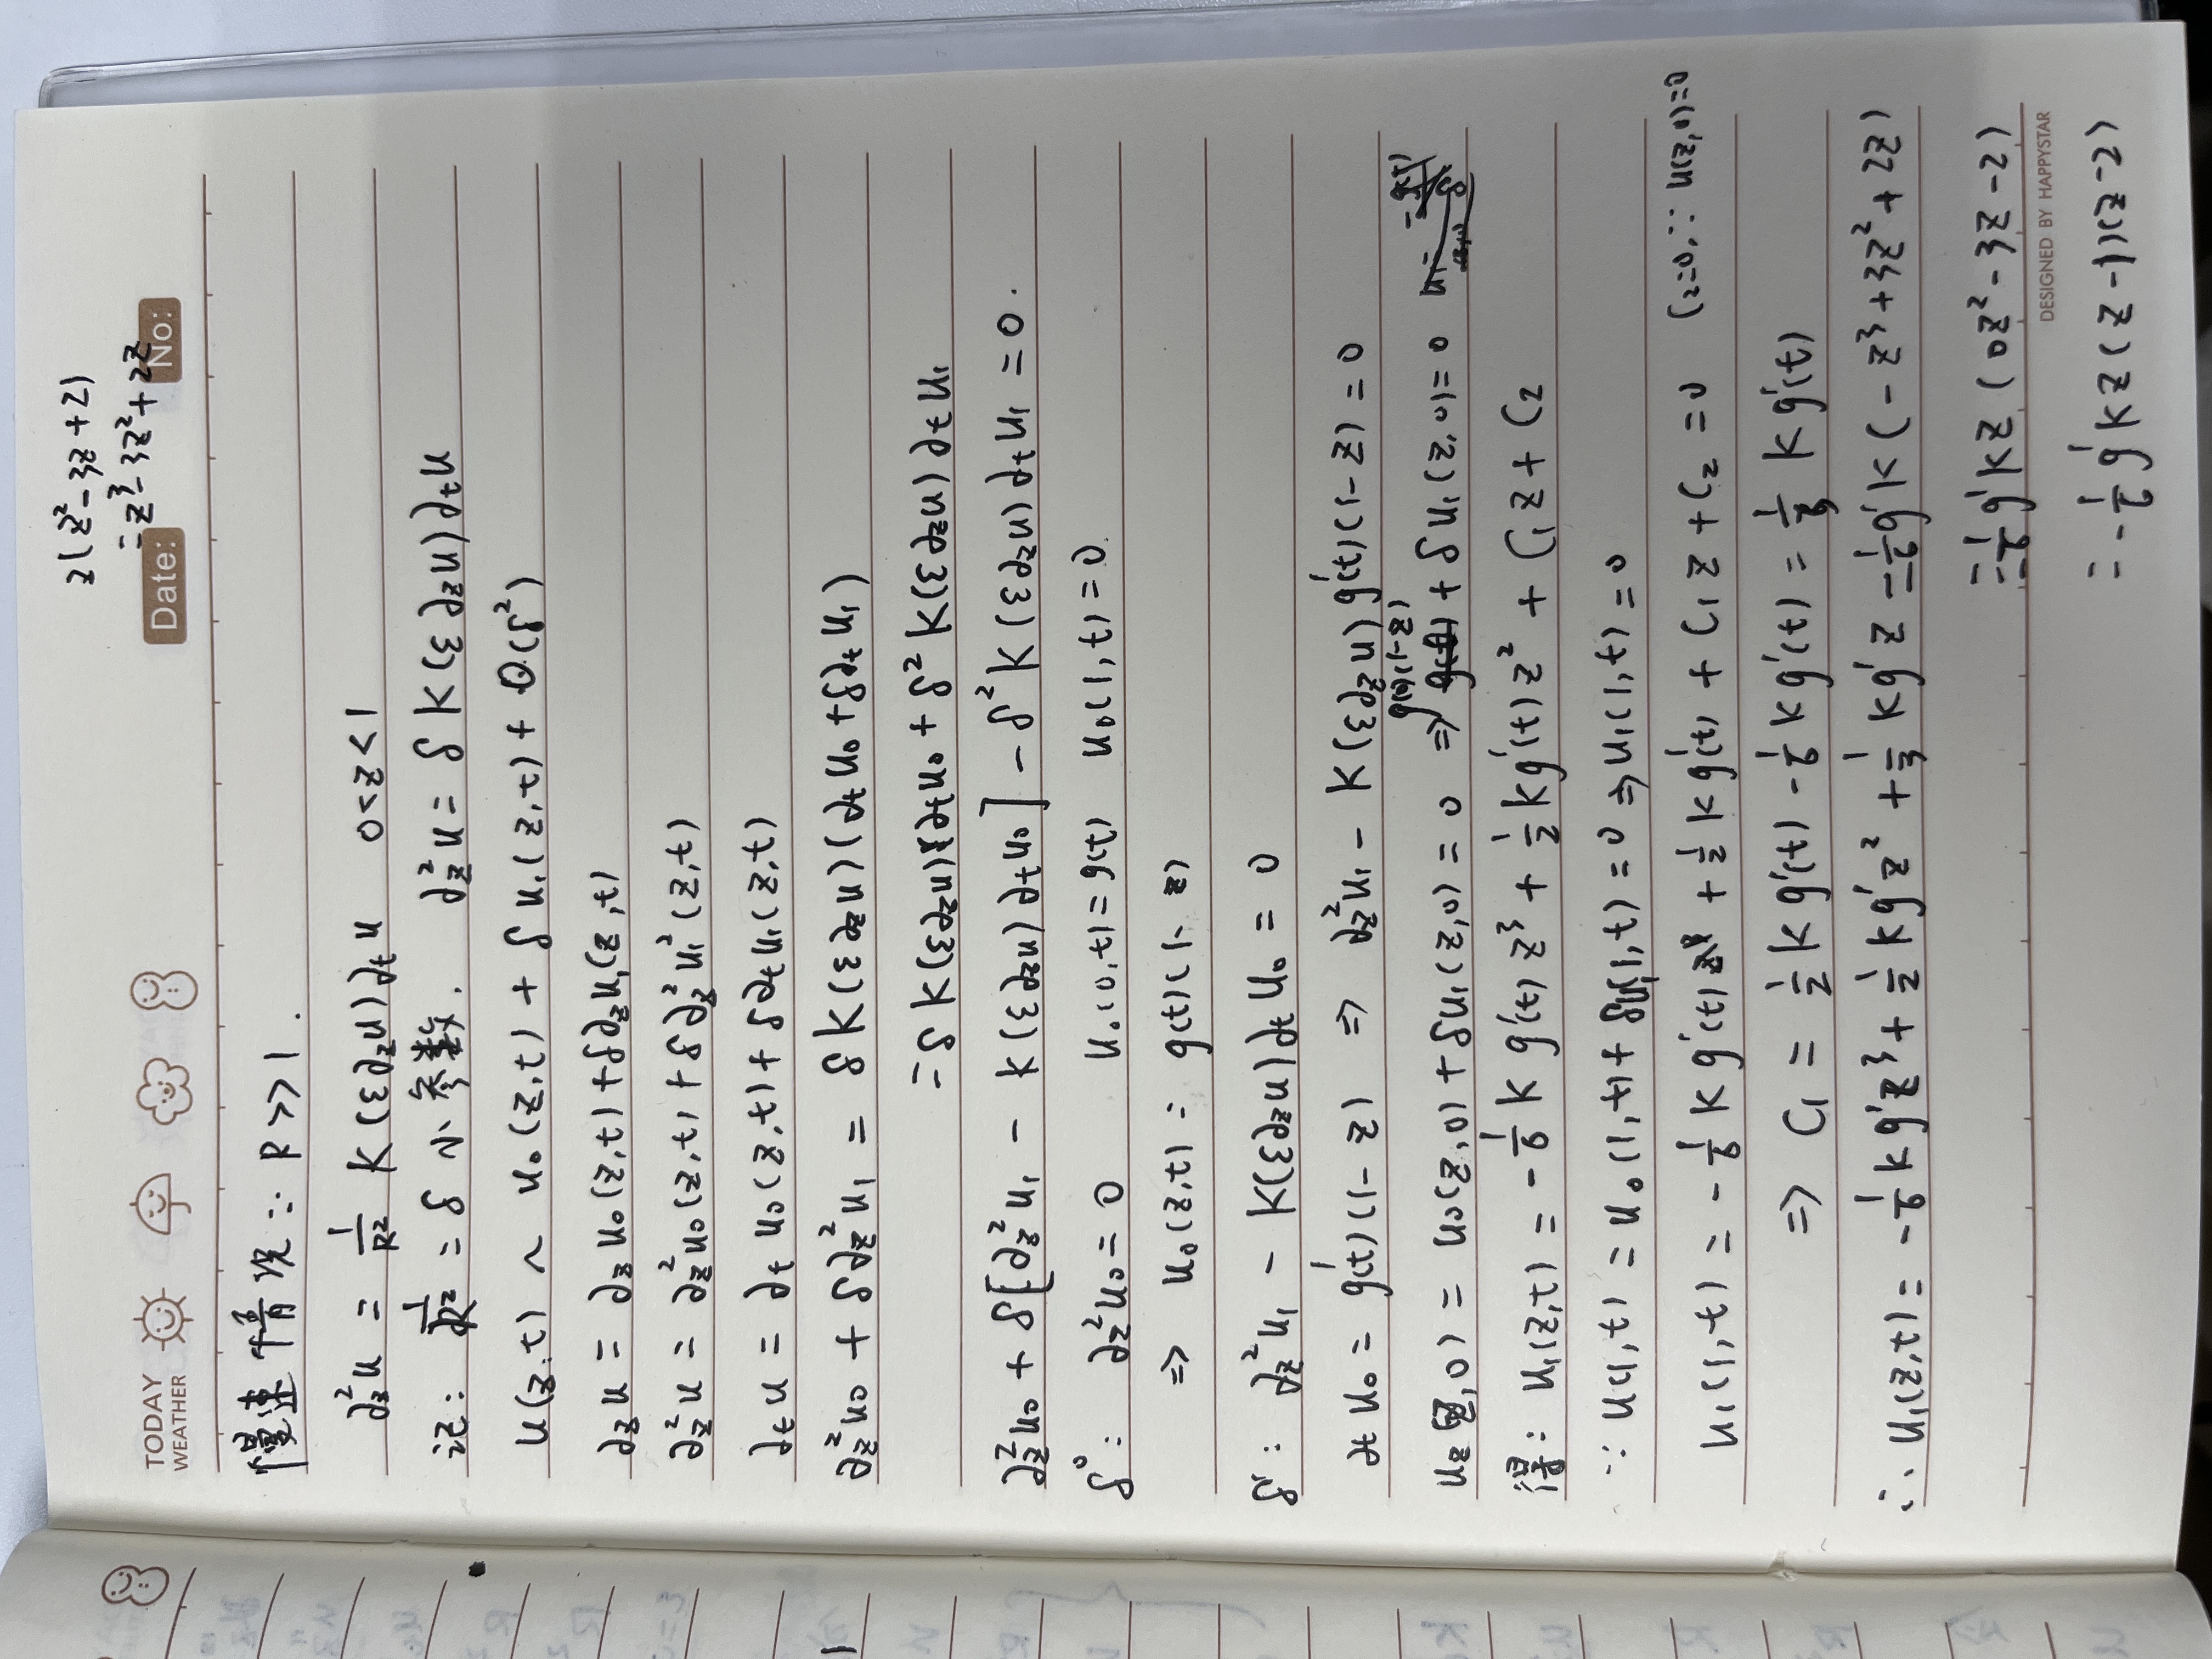 z(z²-3z+2)
=z³-3z²+2z
TODAY
WEATHER
Date:
No:
慢速情况∵ R>>1.
∂z²u = 1/R² K(ε∂zu)∂tu 0<z<1
记: 1/R² = δ 小参数. ∂z²u = δK(ε∂zu)∂tu
u(z,t) ~ u₀(z,t) + δu₁(z,t) + O(δ²)
∂zu = ∂zu₀(z,t)+δ∂zu₁(z,t)
∂z²u = ∂z²u₀(z,t)+δ∂z²u₁²(z,t)
∂tu = ∂tu₀(z,t)+δ∂tu₁(z,t)
∂z²u₀ + δ∂z²u₁ = δK(ε∂zu)(∂tu₀+δ∂tu₁)
=δK(ε∂zu)∂tu₀ + δ²K(ε∂zu)∂tu₁
∂z²u₀ + δ[∂z²u₁ - K(ε∂zu)∂tu₀] - δ²K(ε∂zu)∂tu₁ = 0.
δ⁰: ∂z²u₀ = 0 u₀(0,t)=g(t) u₀(1,t)=0.
⇒ u₀(z,t) = g(t)(1-z)
δ¹: ∂z²u₁ - K(ε∂zu)∂tu₀ = 0
∂tu₀ = g'(t)(1-z) ⇒ ∂z²u₁ - K(ε∂zu)g'(t)(1-z) = 0
g(0)(1-z)
uz(z,0) = u₀(z,0)+δu₁(z,0) = 0 ⇒ + δu₁(z,0)=0
得: u₁(z,t) = -1/6 K g'(t)z³ + 1/2 Kg'(t)z² + C₁z + C₂
∵ u(1,t) = u₀(1,t)+δu₁(1,t) = 0 ⇒ u₁(1,t) = 0
u₁(1,t) = -1/6 K g'(t) + 1/2 K g'(t) + C₁z + C₂ = 0 C₂=0,∵ u(z,0)=0
⇒ C₁ = 1/2 K g'(t) - 1/6 K g'(t) = 1/3 K g'(t)
∴ u₁(z,t) = -1/6 Kg'z³ + 1/2 Kg'z² + 1/3 Kg'z = 1/6 g'K(-z³+3z²+2z)
=1/6 g'Kz(0z²-3z-2)
DESIGNED BY HAPPYSTAR
= -1/6 g'Kz(z-1)(z-2)